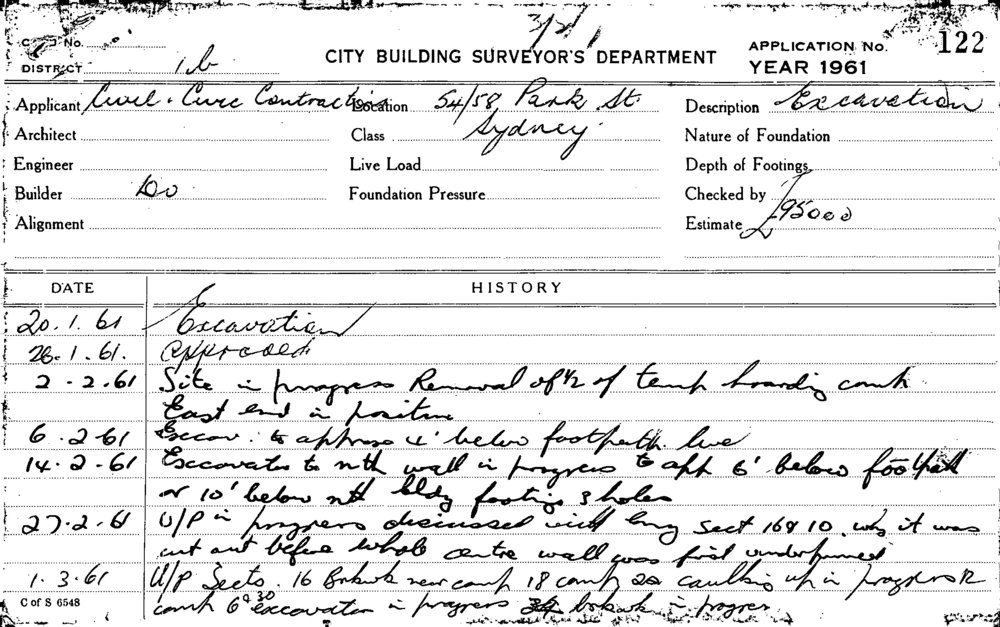 3/2/1
C   D No.
CITY BUILDING SURVEYOR'S DEPARTMENT
APPLICATION No. 122
DISTRICT 1b
YEAR 1961
Applicant Civil & Civic Contracting Location 54/58 Park St. Description Excavation
Architect Class Sydney Nature of Foundation
Engineer Live Load Depth of Footings
Builder Do Foundation Pressure Checked by
Alignment Estimate £95000
DATE HISTORY
20.1.61 Excavation
26.1.61. Approved
2.2.61 Site in progress Removal of 1/2 of temp hoarding comp
East end in position
6.2.61 Excav. to approx 4' below footpath live
14.2.61 Excavates to nth wall in progress to app 6' below footpath
or 10' below nth bldg footing 3 holes
27.2.61 U/P in progress discussed with sect 16 & 10 why it was
cut out before whole centre wall was first underpinned
1.3.61 U/P Sects. 16 Brkwk near comp 18 comp 20 caulking up in progress
comp excavation in progress brkwk in progress
C of S 6548